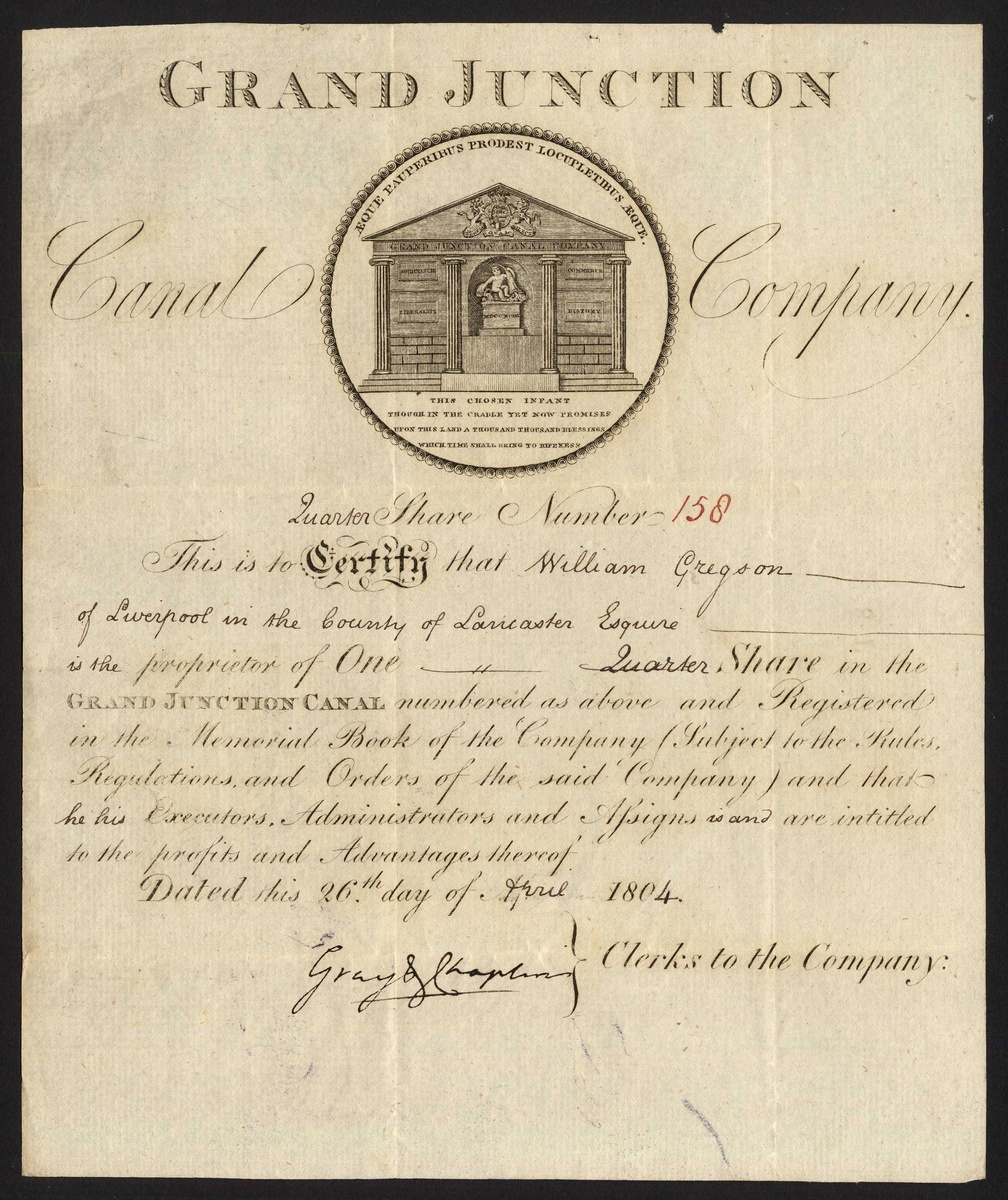 GRAND JUNCTION
ÆQUE PAUPERIBUS PRODEST LOCUPLETIBUS ÆQUE.
Canal Company.
GRAND JUNCTION CANAL COMPANY
COMMERCE
HISTORY
THIS CHOSEN INFANT
THOUGH IN THE CRADLE YET NOW PROMISES
UPON THIS LAND A THOUSAND THOUSAND BLESSINGS
WHICH TIME SHALL BRING TO RIPENESS
Quarter Share Number 158
This is to Certify that William Gregson
of Liverpool in the County of Lancaster Esquire
is the proprietor of One " Quarter Share in the
GRAND JUNCTION CANAL numbered as above and Registered
in the Memorial Book of the Company (Subject to the Rules,
Regulations, and Orders of the said Company) and that
he his Executors, Administrators and Aſsigns is and are intitled
to the profits and Advantages thereof
Dated this 26.th day of April 1804.
Gray & Chaplin } Clerks to the Company.